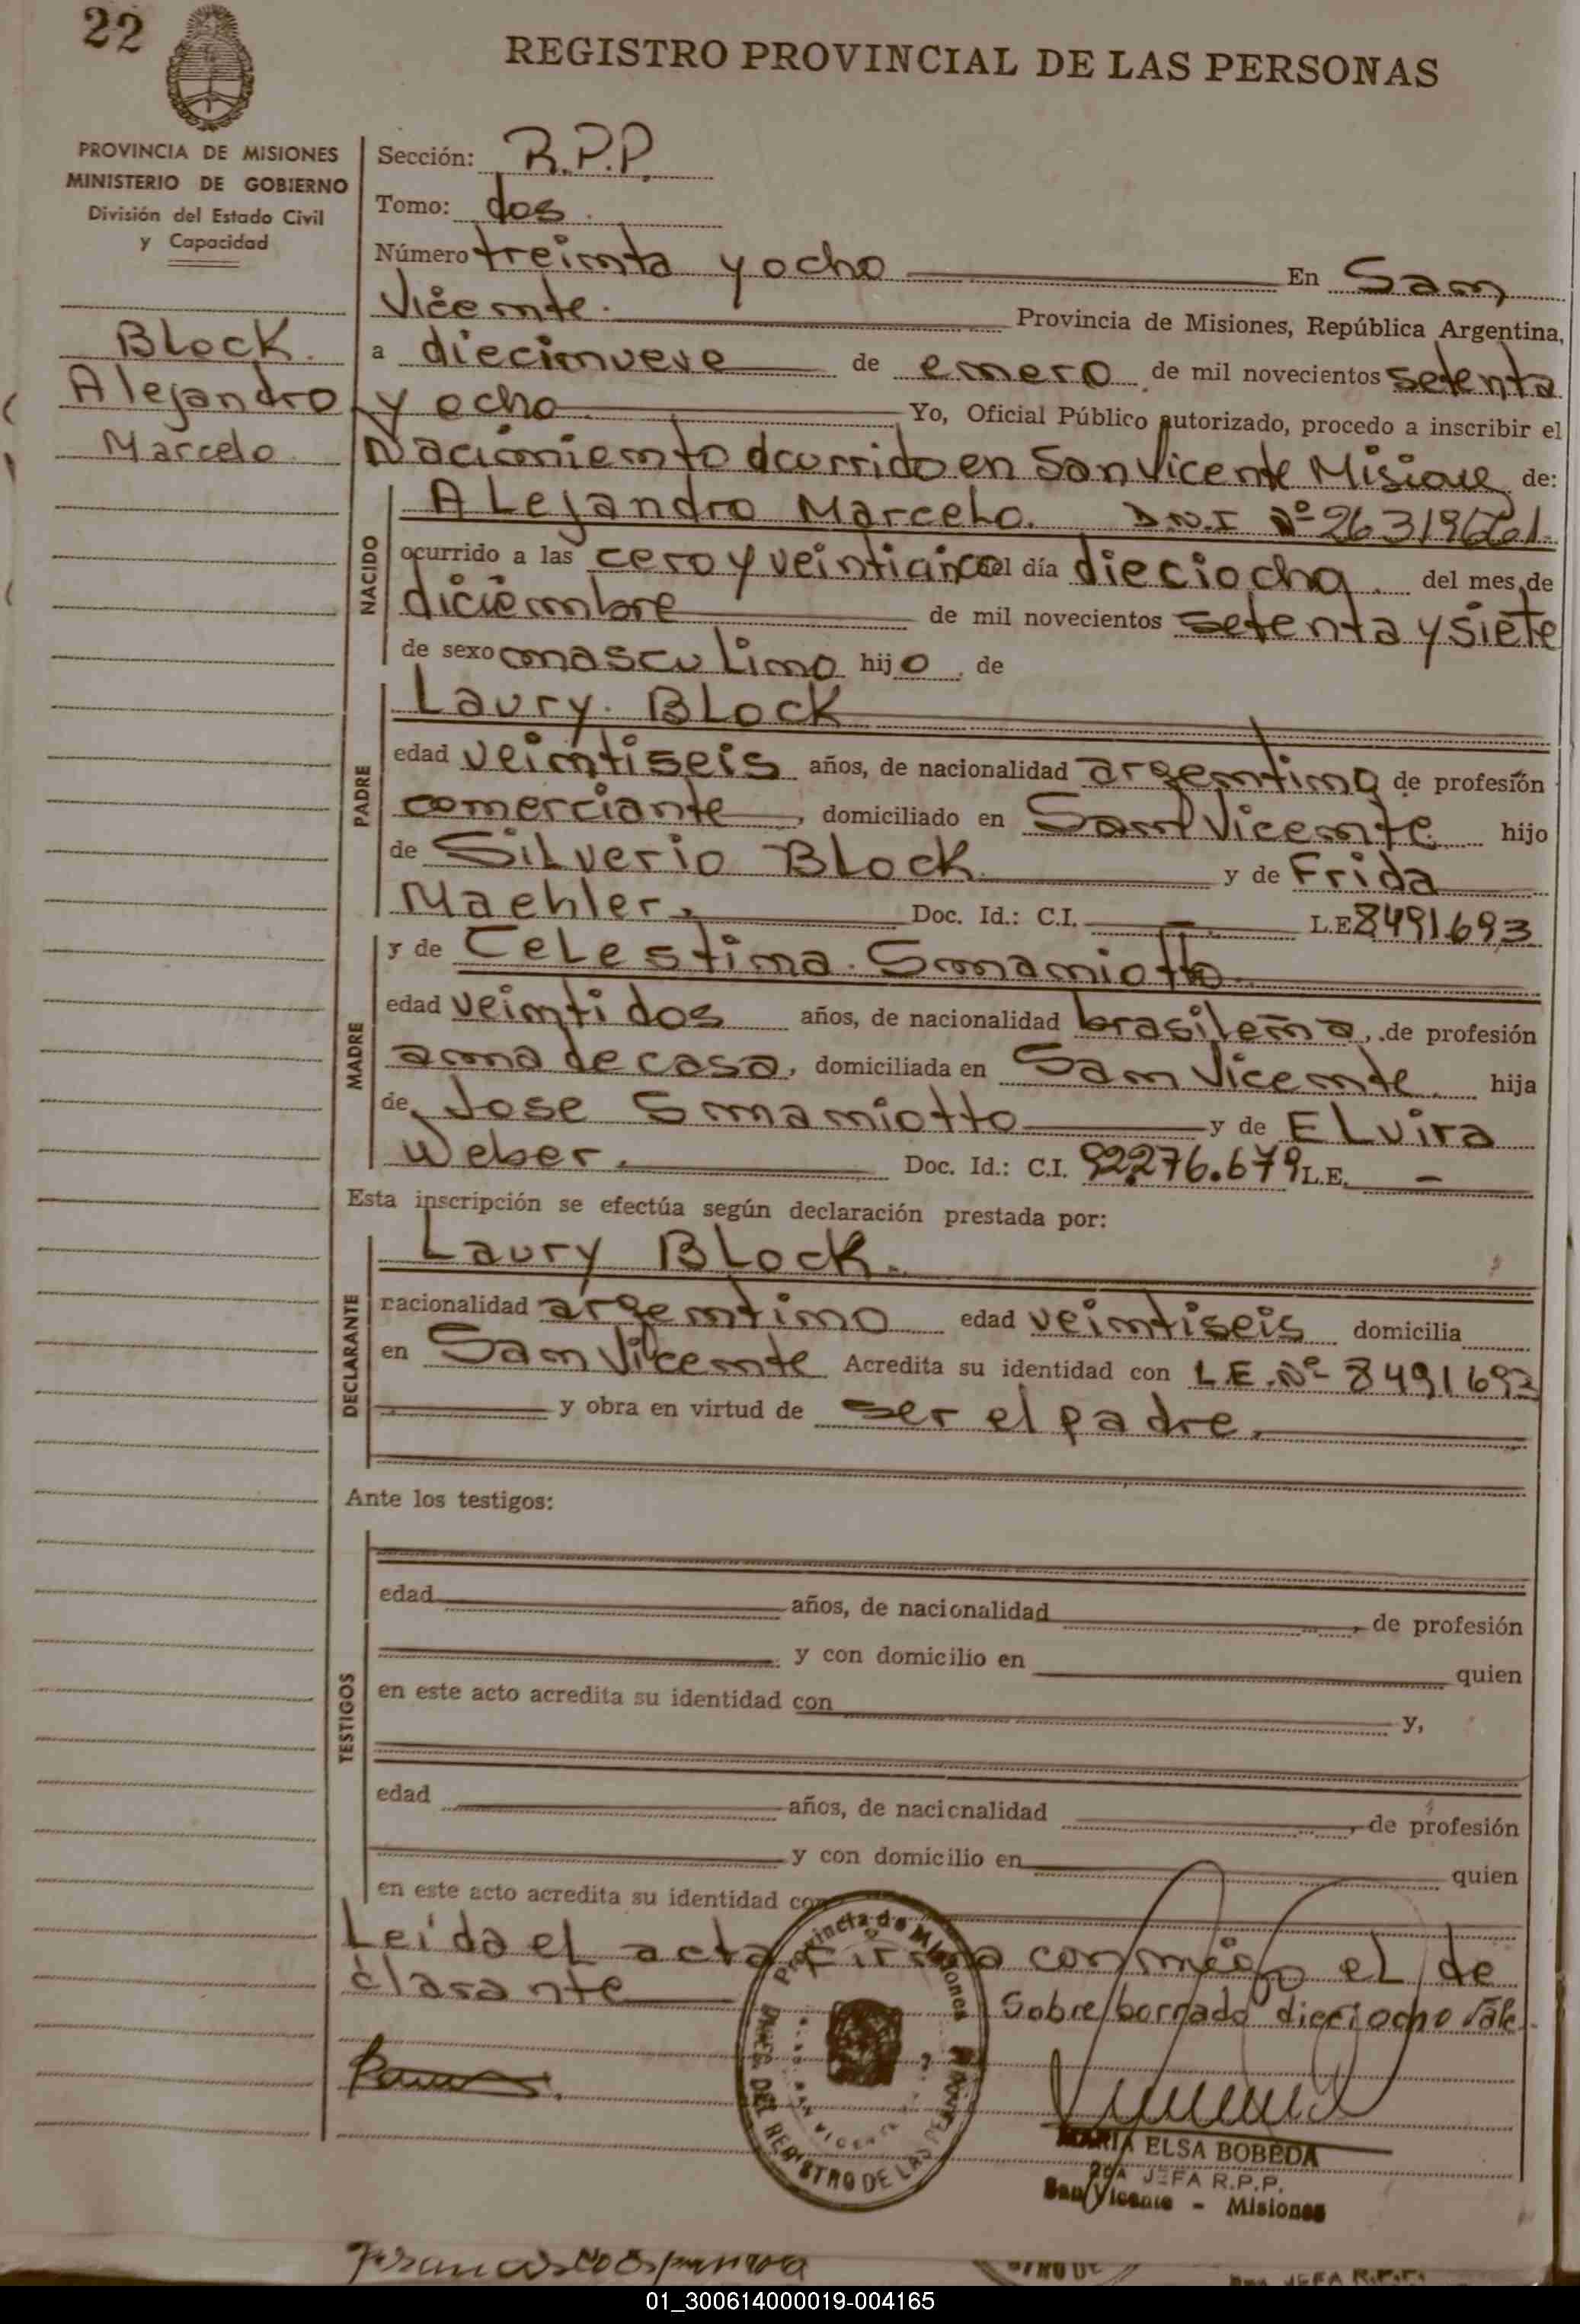 22
REGISTRO PROVINCIAL DE LAS PERSONAS
PROVINCIA DE MISIONES
MINISTERIO DE GOBIERNO
División del Estado Civil
y Capacidad
Block.
Alejandro
Marcelo
Sección: R.P.P.
Tomo: dos.
Número treinta y ocho En San
Vicente. Provincia de Misiones, República Argentina,
a diecinueve de enero de mil novecientos setenta
y ocho Yo, Oficial Público autorizado, procedo a inscribir el
Nacimiento ocurrido en San Vicente Misiones de:
NACIDO
Alejandro Marcelo. D.N.I Nº
ocurrido a las cero y veinticinco del día dieciocho. del mes de
diciembre de mil novecientos setenta y siete
de sexo masculino hijo, de
PADRE
Laury. Block
edad veintiseis años, de nacionalidad argentino de profesión
comerciante, domiciliado en San Vicente. hijo
de Silverio Block y de Frida
Maehler, Doc. Id.: C.I. — L.E 8491693
MADRE
y de Celestina. Smaniotto
edad veintidos años, de nacionalidad brasileña, de profesión
ama de casa, domiciliada en San Vicente. hija
de Jose Smaniotto y de Elvira
Weber. Doc. Id.: C.I. 92276.679 L.E. —
Esta inscripción se efectúa según declaración prestada por:
DECLARANTE
Laury Block.
nacionalidad argentino edad veintiseis domicilia
en San Vicente Acredita su identidad con L.E. Nº 8491693
y obra en virtud de ser el padre.
Ante los testigos:
TESTIGOS
edad años, de nacionalidad, de profesión
y con domicilio en quien
en este acto acredita su identidad con y,
edad años, de nacionalidad, de profesión
y con domicilio en quien
en este acto acredita su identidad con
Leida el acta firma conmigo el de
clarante
Sobre borrado dieciocho Vale.
Provincia de Misiones
REGISTRO DE LAS
SAN VICENTE
MARIA ELSA BOBEDA
JEFA R.P.P.
San Vicente - Misiones
JEFA R.P.P.
01_300614000019-004165